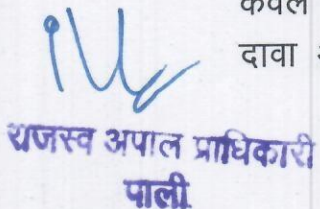 केवल
दावा
राजस्व अपाल प्राधिकारी
पाली